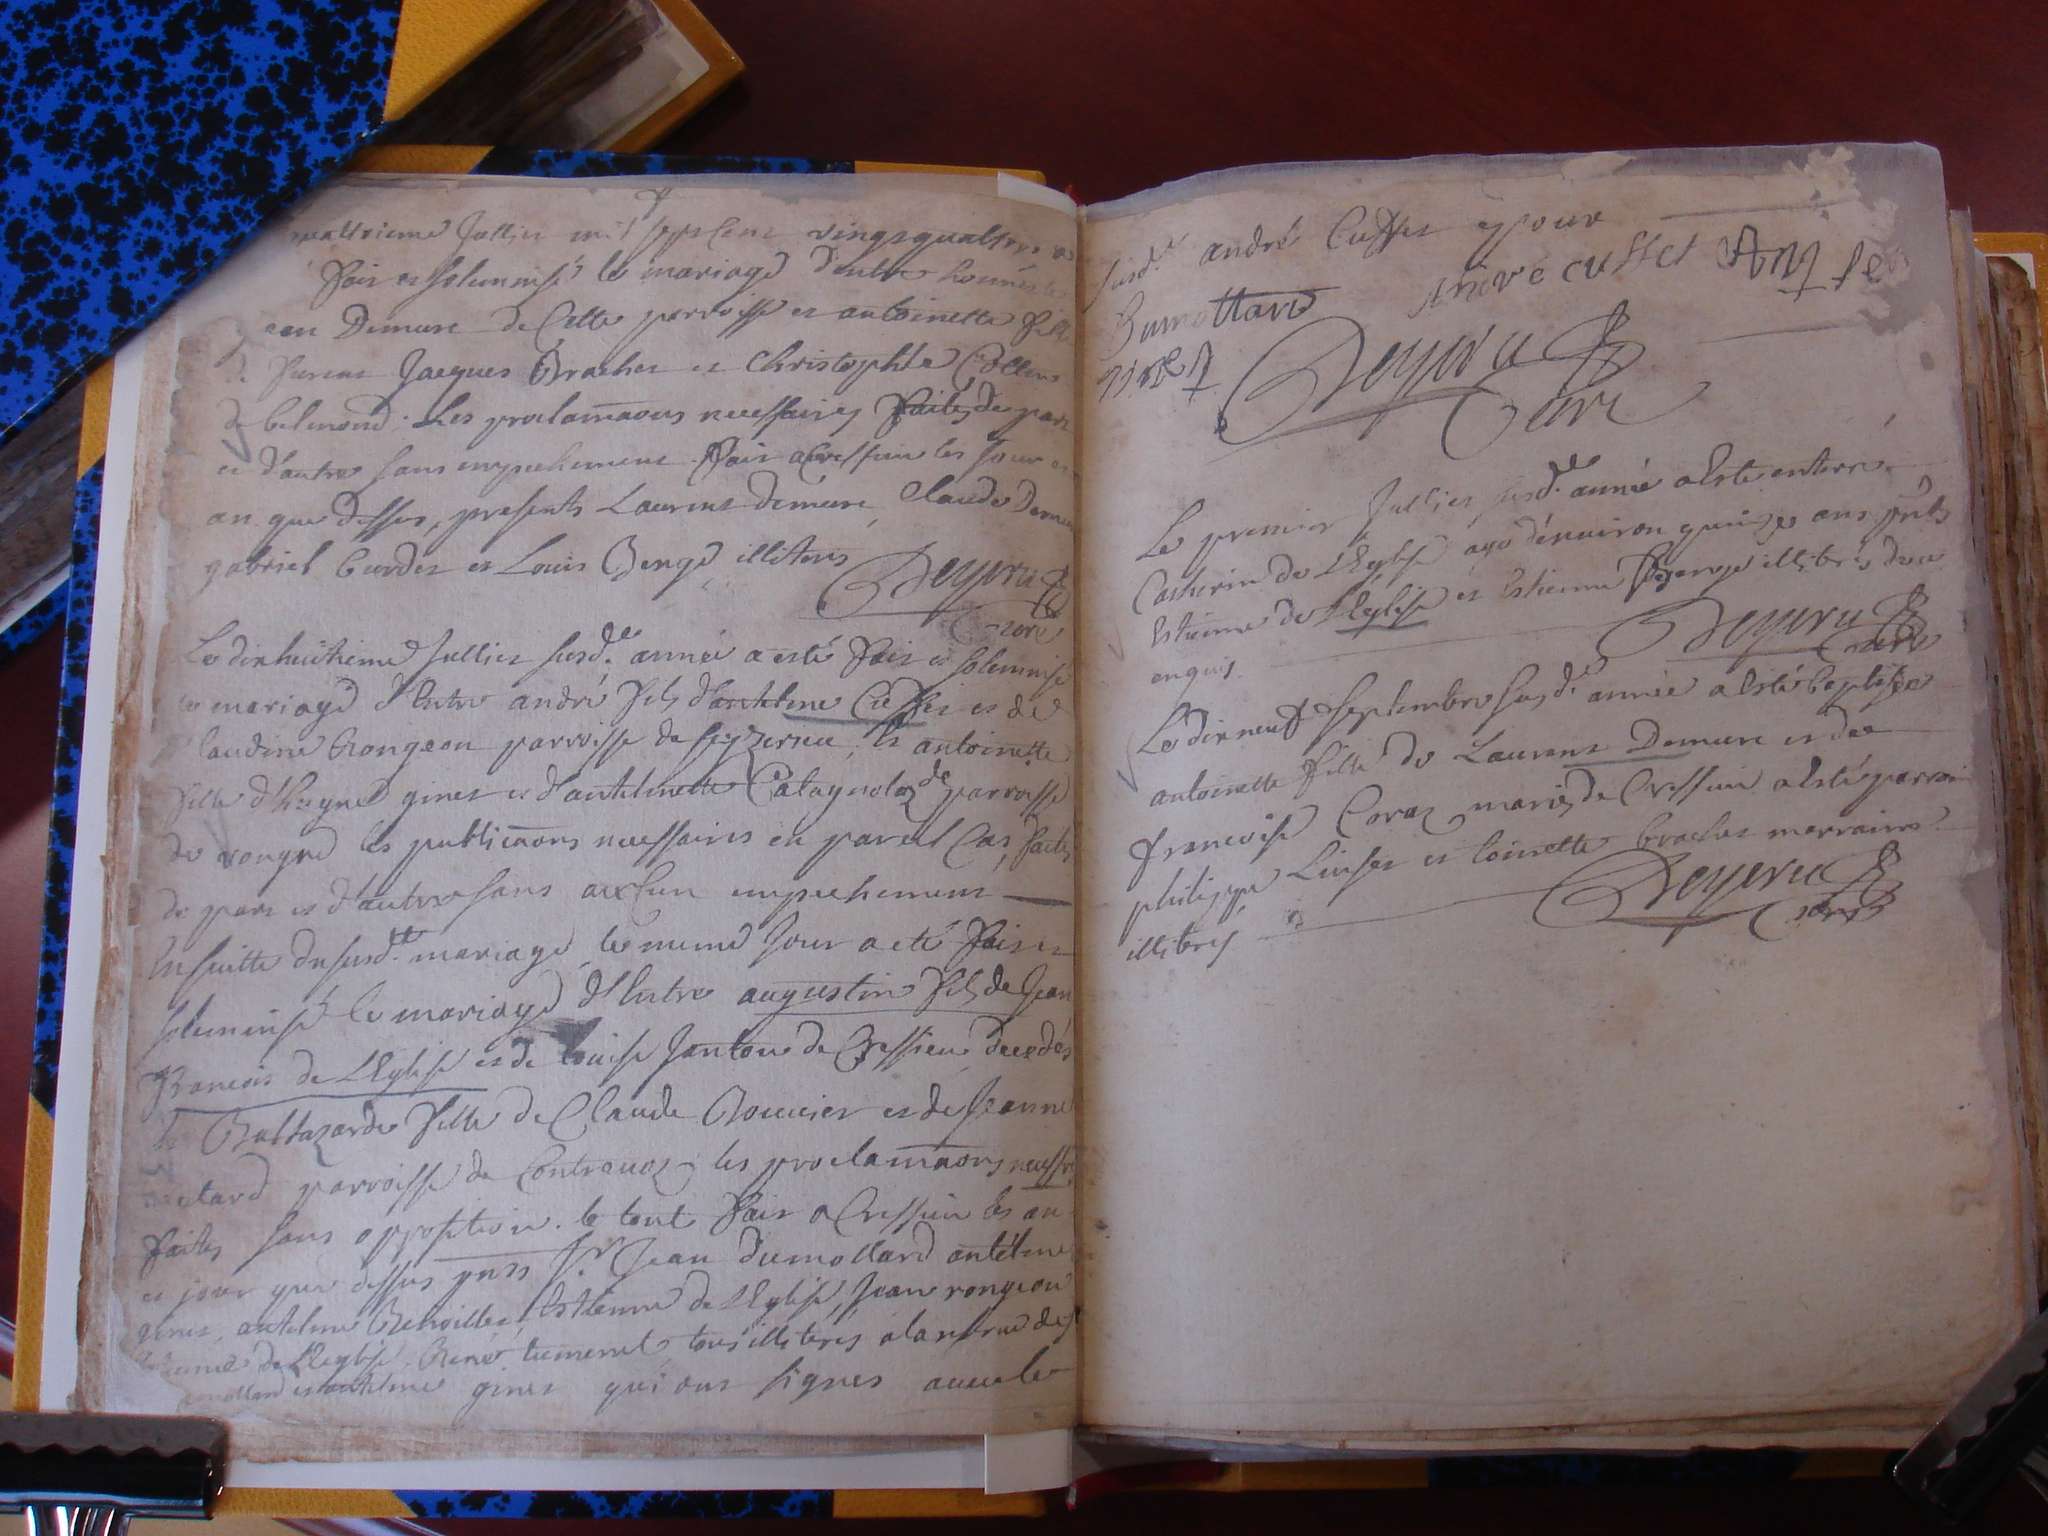 quattrieme Jullier mil sept cent vingsquattre
Fait et solemnisé le mariage d'entre honnéste
Demure de Cette parroisse et antoinette fille
Jacques Brachet et Christophla Collen
de belmond. Les proclamaôns necessaires faites de part
et d'autre sans empechement. Fait a Cressieu les jour et
an que dessus, presents Laurent Demure, Claude Demure
gabriel burdet et Louis Benge illiteres
Deyeru
Curé
Le dixhuitieme Jullier susd.e année a esté fait et solemnisé
le mariage d'entre andré fils d'antelme Cusset et de
laudine Rongeon parroisse de seyzerieu, et antoinette
fille d'huyne ginet et d'antelmette Catagnolaz de parroisse
de rougne les publicaôns necessaires en pareil Cas faites
de part et d'autre sans aucun empechement
Ensuitte du susd.t mariage le meme jour a eté fait et
solemnisé le mariage d'Entre augustin fils de Jean
François de LEglise et de louise Janton de Cressieu decedés
et Baltazarde fille de Claude Bouvier et de Jeanne
parroisse de Contrevoz, les proclamaôns necessres
faites sans opposition. le tout fait a Cressieu les an
et jour que dessus pnts Sr. Jean dumollard antelme
ginet, antelme Estienne de LEglise, Jean rongeon
de LEglise, René tous illiteres a la reserve des
antelme ginet qui ont signés avec le
susd.e andré Cusset epour
Dumollard Andre cusset
Deyeru
Curé
Le premier Jullier susd.e année a Esté enterré
Catherin de LEglise agé d'enuiron quinze ans pnts
Estienne de LEglise et Estienne illiterés de ce
enquis.
Deyeru
Curé
Le dixneuf septembre susd.e année a Esté baptisée
antoinette fille de Laurent Demure et de
françoise Coraz mariés de Cressieu a Esté parrain
philippe et toinette brachet marraine
illiterés
Deyeru
Curé